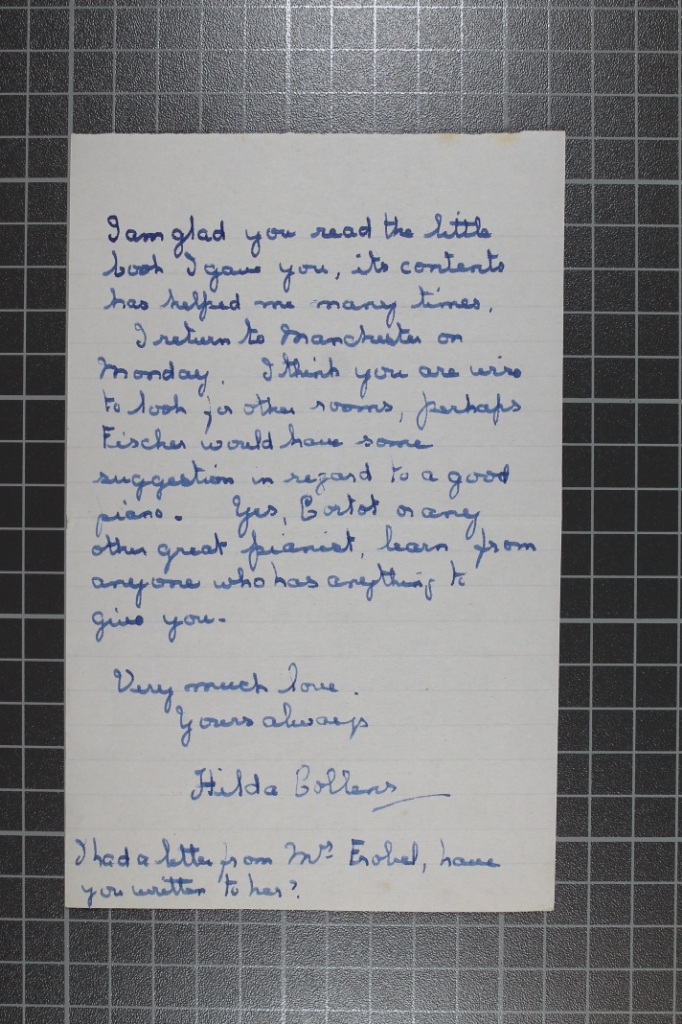 I am glad you read the little
book I gave you, its contents
has helped me many times.
I return to Manchester on
Monday. I think you are wise
to look for other rooms, perhaps
Fischer would have some
suggestion in regard to a good
piano. Yes, Cortot or any
other great pianist, learn from
anyone who has anything to
give you.
Very much love.
Yours always
Hilda Collens
I had a letter from Mrs, have
you written to her?